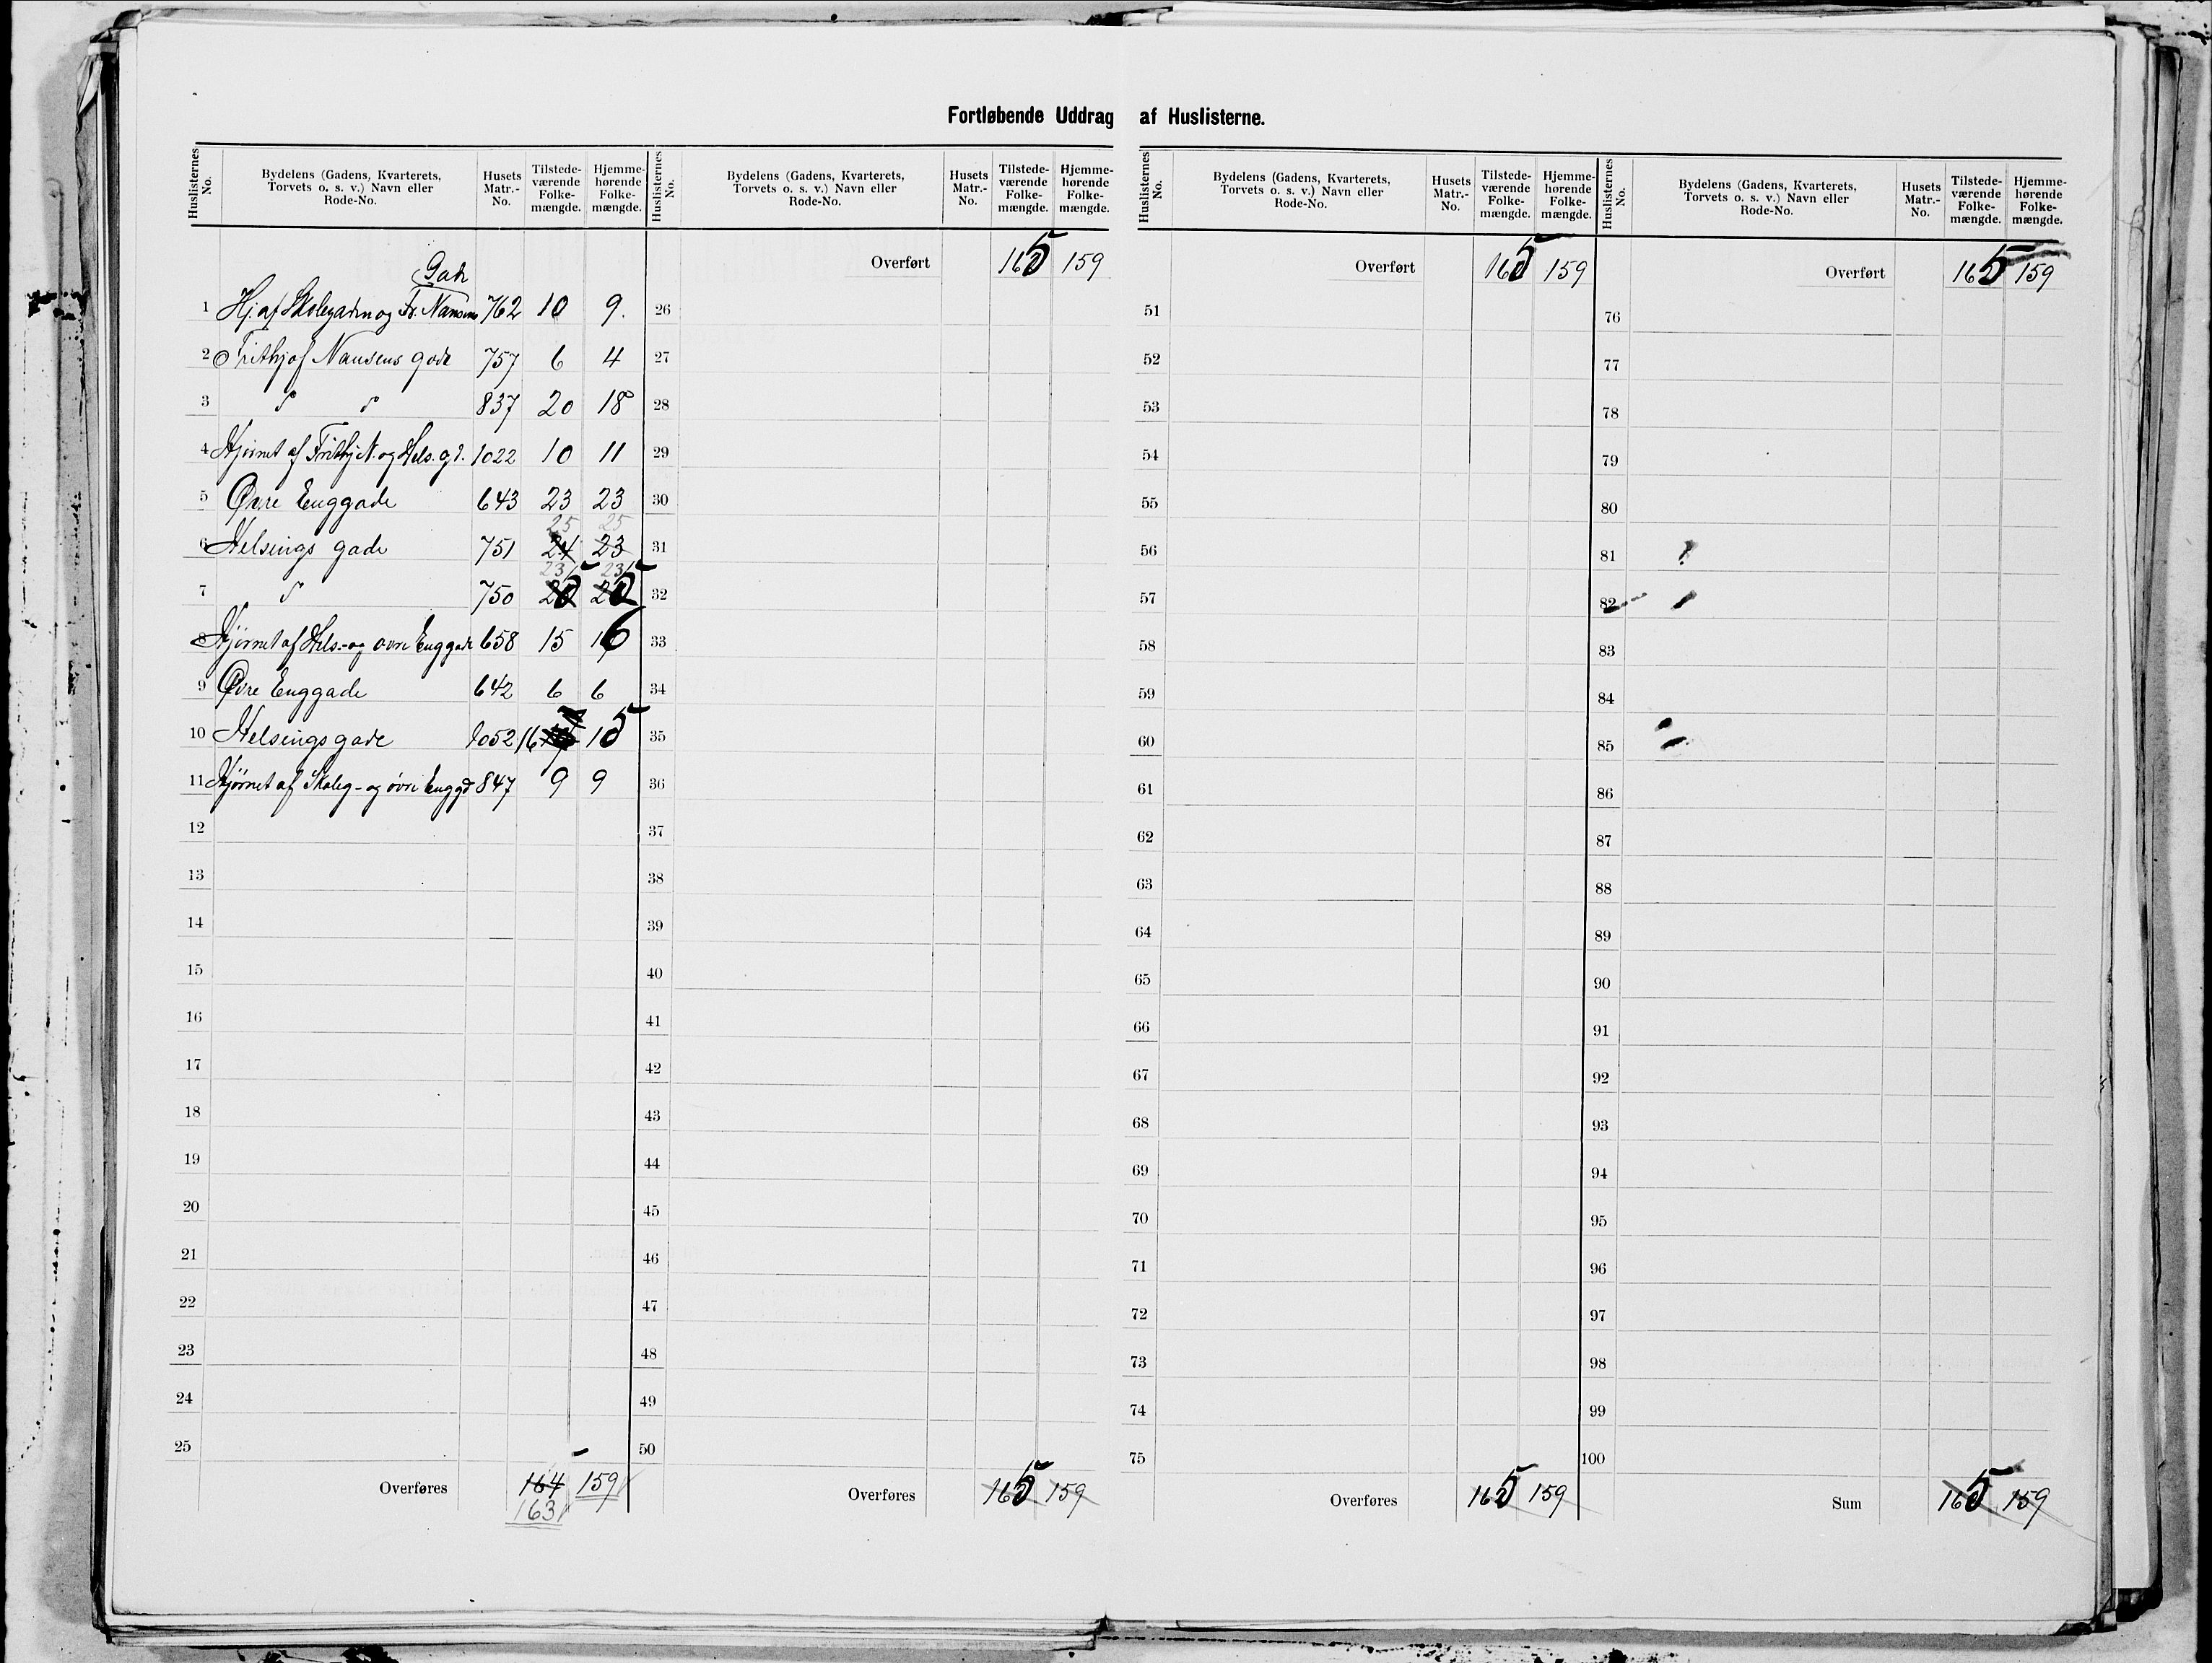 Fortløbende Uddrag af Huslisterne.
Huslisternes No. Bydelens (Gadens, Kvarterets, Torvets o. s. v.) Navn eller Rode-No. Husets Matr.-No. Tilstedeværende Folkemængde. Hjemmehørende Folkemængde.
Gade
1 Hj. af Skolegaden og Fr. Nansens 762 10 9.
2 Frithjof Nansens gade 757 6 4
3 " " 837 20 18
4 Hjørnet af Frithj N. og Hels. gd. 1022 10 11
5 Øvre Enggade 643 23 23
25 25
6 Helsings gade 751 24 23
23 23
7 " 750 25 25
8 Hjørnet af Hels.- og øvre Enggade 658 15 16
9 Øvre Enggade 642 6 6
10 Helsingsgade 1052 16 15
11 Hjørnet af Skoleg- og øvre Enggd 847 9 9
12
13
14
15
16
17
18
19
20
21
22
23
24
25
Overføres 164 159
163
Huslisternes No. Bydelens (Gadens, Kvarterets, Torvets o. s. v.) Navn eller Rode-No. Husets Matr.-No. Tilstedeværende Folkemængde. Hjemmehørende Folkemængde.
Overført 165 159
26
27
28
29
30
31
32
33
34
35
36
37
38
39
40
41
42
43
44
45
46
47
48
49
50
Overføres 165 159
Huslisternes No. Bydelens (Gadens, Kvarterets, Torvets o. s. v.) Navn eller Rode-No. Husets Matr.-No. Tilstedeværende Folkemængde. Hjemmehørende Folkemængde.
Overført 165 159
51
52
53
54
55
56
57
58
59
60
61
62
63
64
65
66
67
68
69
70
71
72
73
74
75
Overføres 165 159
Huslisternes No. Bydelens (Gadens, Kvarterets, Torvets o. s. v.) Navn eller Rode-No. Husets Matr.-No. Tilstedeværende Folkemængde. Hjemmehørende Folkemængde.
Overført 165 159
76
77
78
79
80
81
82
83
84
85
86
87
88
89
90
91
92
93
94
95
96
97
98
99
100
Sum 165 159